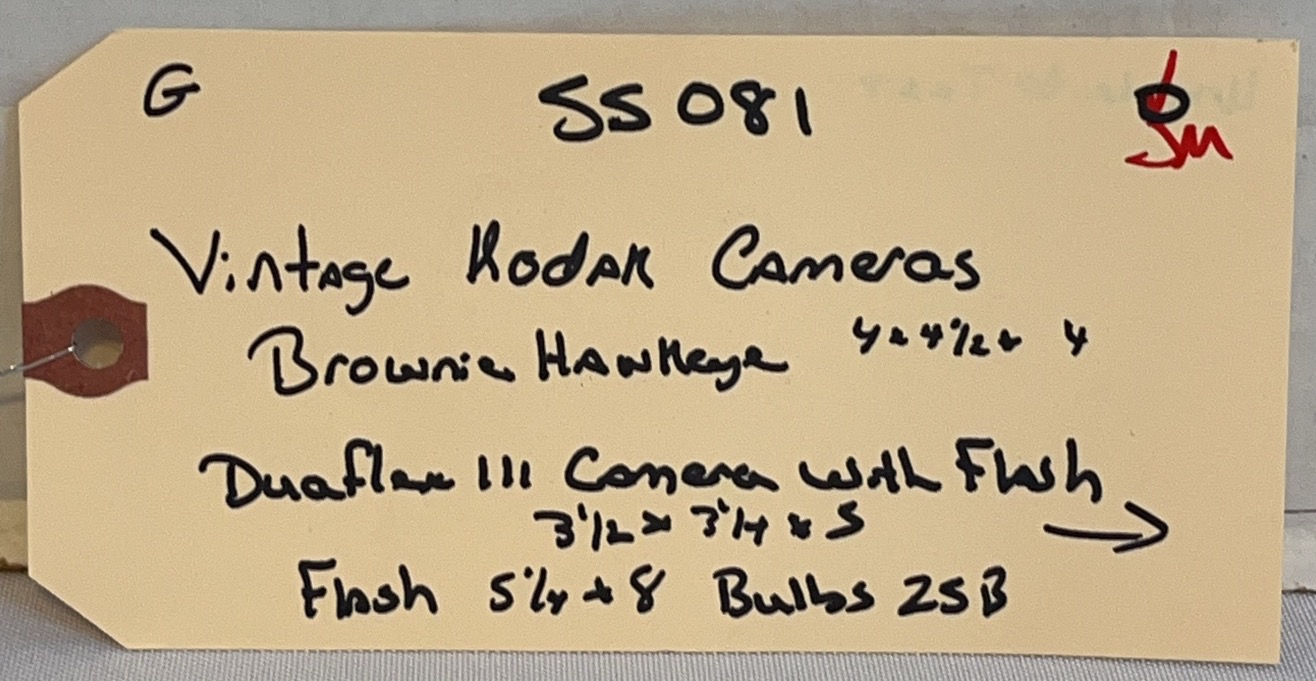 G SS 081 SM
Vintage Kodak Cameras
Brownie Hawkeye 4 x 4 1/2 x 4
Duaflex III Camera with Flash
3 1/2 x 3 1/4 x 5 →
Flash 5 1/4 x 8 Bulbs 25B